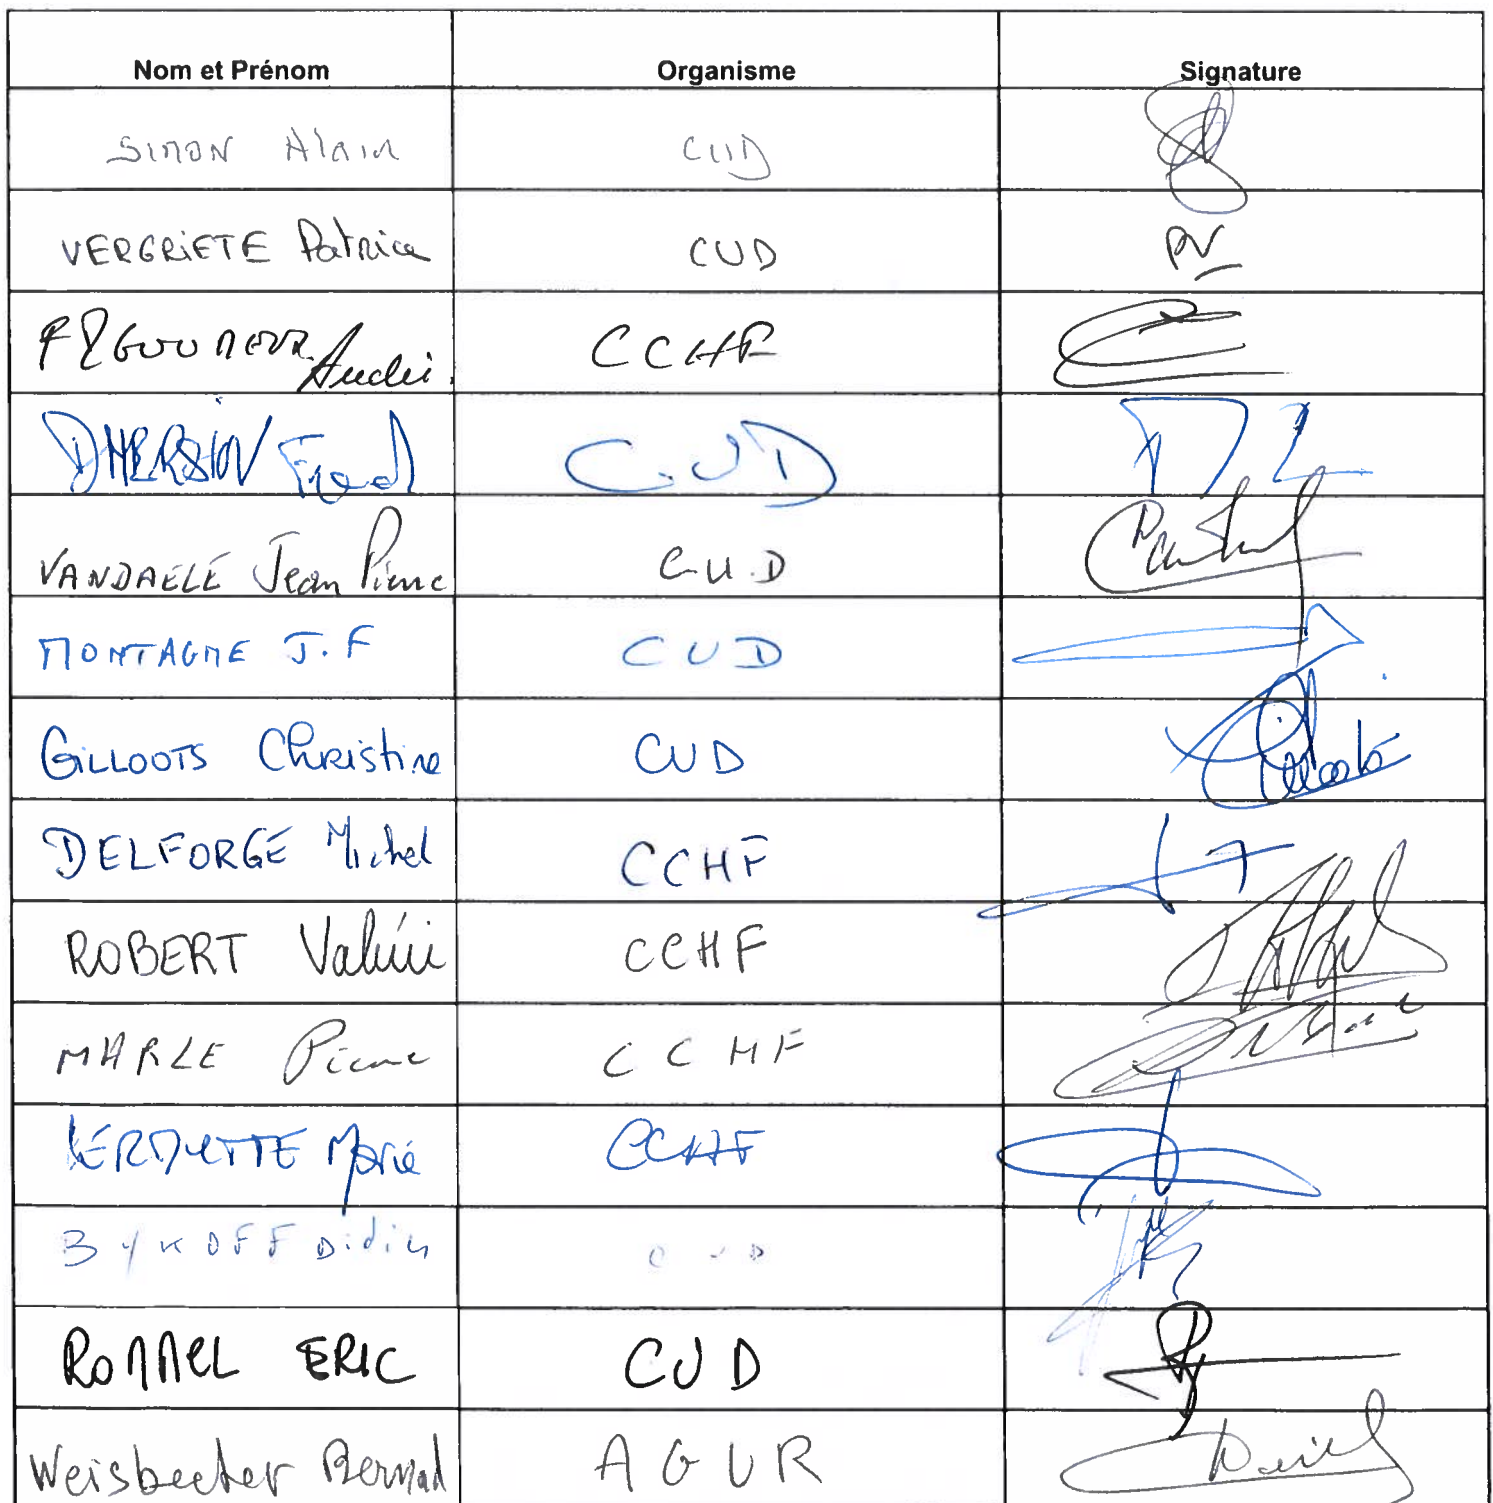 Nom et Prénom Organisme Signature
SIMON Alain CUD
VERGRIETE Patrice CUD PV
André CCHF
Fred C.UD
VANDAELE Jean Pierre C.U.D
MONTAGNE J.F CUD
GILLOOTS Christine CUD
DELFORGE Michel CCHF
ROBERT Valérie CCHF
MARLE Pierre CCHF
Marie CCHF
BYKOFF Didier CUD
ROMMEL ERIC CUD
Weisbecker Bernard AGUR